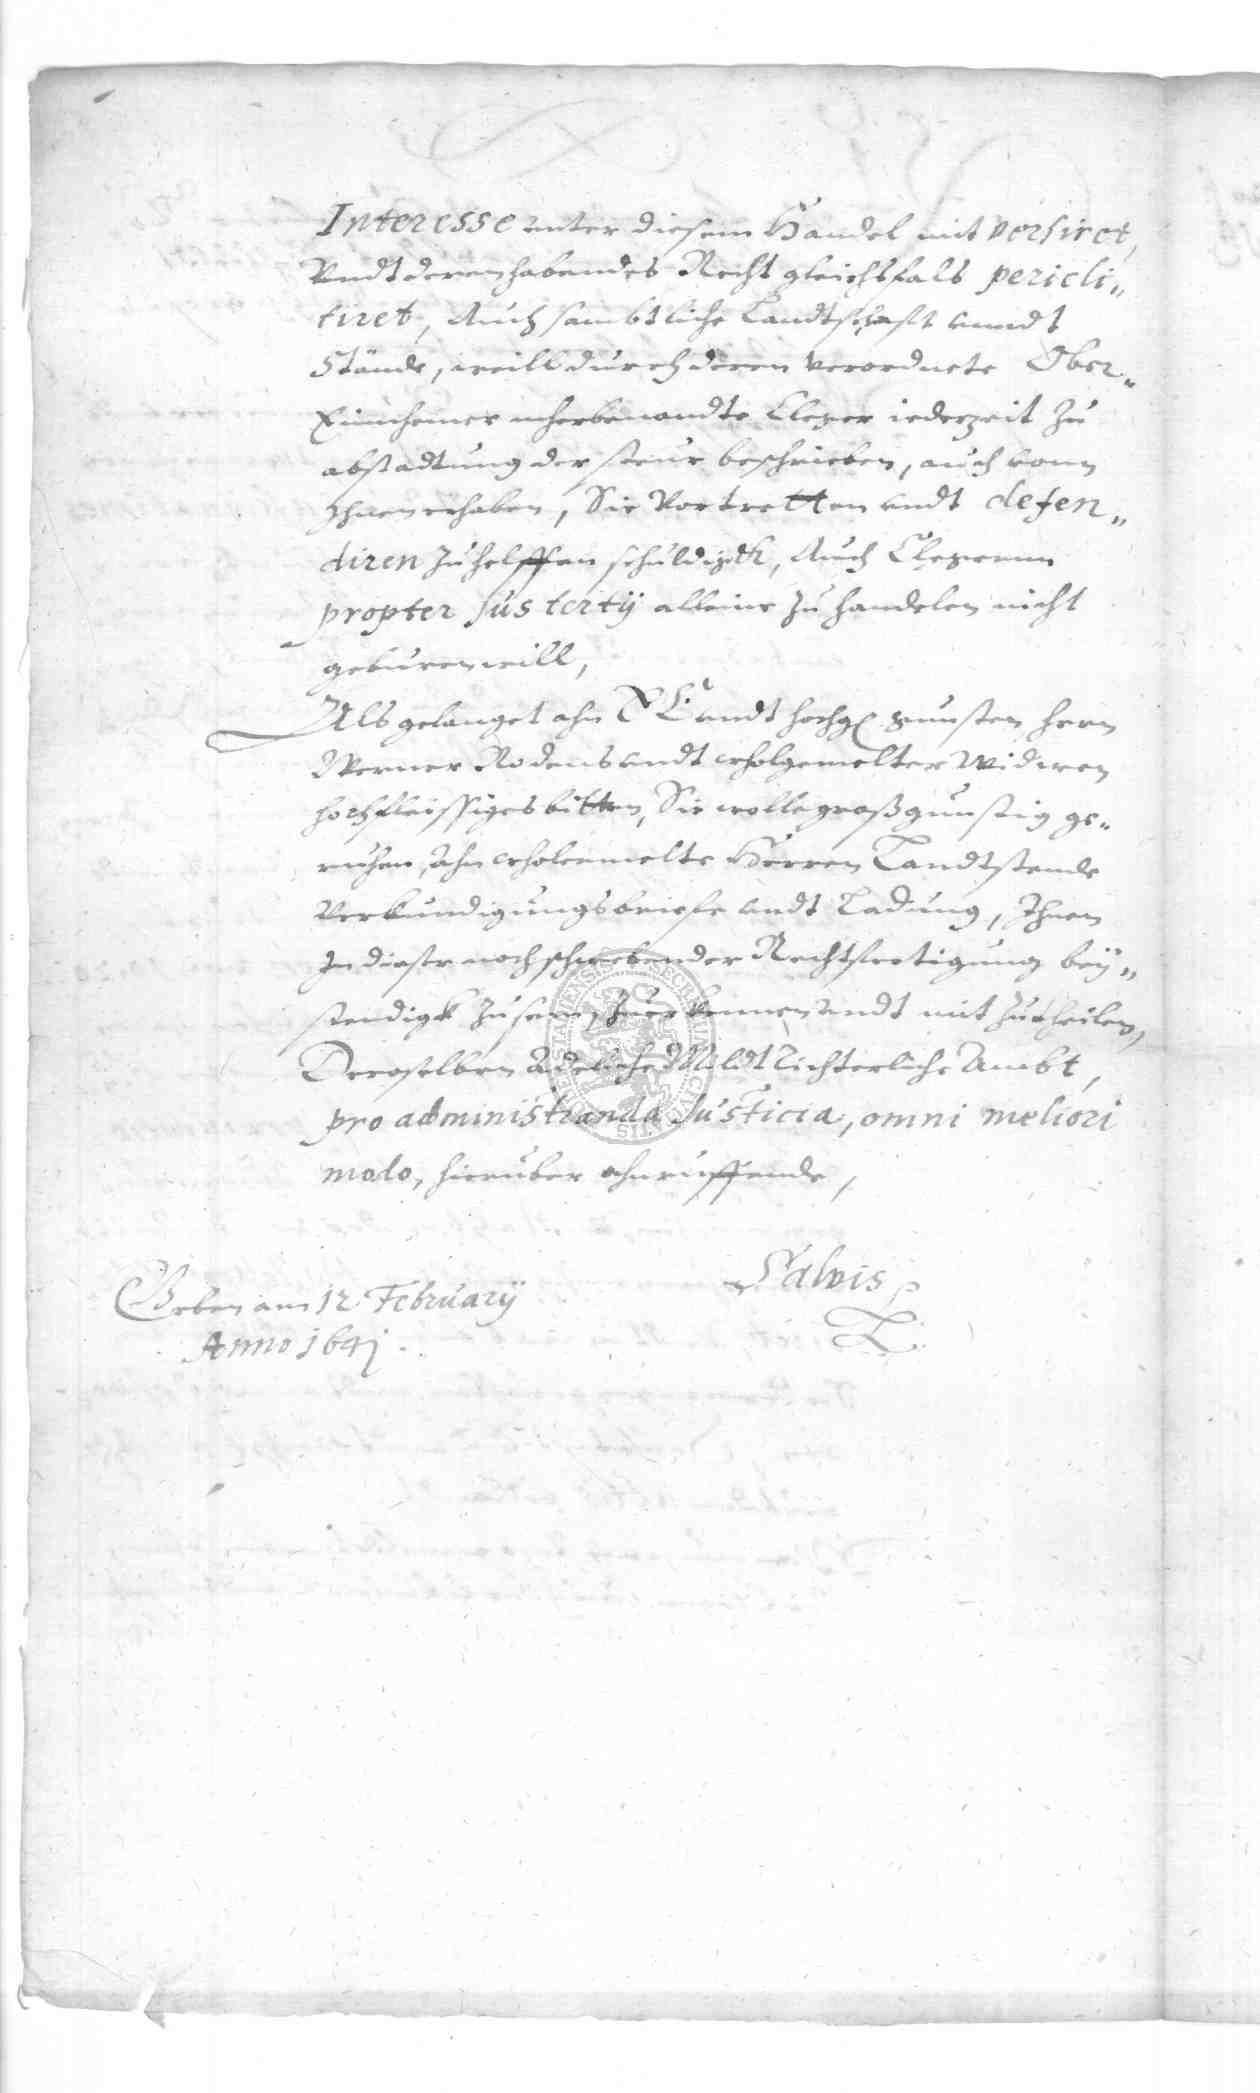 Interesse unter diesem Handel mit versiret,
Undt deren habendes Recht gleichsfals pericli„
tiret, Auch sambtliche Landtschafft unndt
Stände, weill durch deren verordnete Ober„
Einnehmer ehrbenandte Cleger iederzeit zu
abstadtung der steur beschrieben, auch vonn
Ihnen erhaben, Sie Vortretten undt defen„
diren zuhelffen schuldigk, Auch Clegerenn
propter Jus tertÿ alleine zu handelen nicht
geburen will,
Als gelanget ahn E E undt hochg gunsten Hern
Werner Rodens undt erholgemelter Widwen
hochfleissiges bitten, Sie wolle großgunstig ge„
ruhen, Ahn Herren Landtstende
Verkundigungsbriefe undt Ladung, Ihnen
In dieser noch schwebender Rechtfertigung beÿ„
stendigk zu sein, zuerkennen undt mit zutheilen,
Deroselben Adeliche Mildt Richterliche Ambt,
pro administranda Justicia, omni meliori
modo, hieruber ahnruffende,
Salvis
Geben am 12 Februarÿ
Anno 1641.